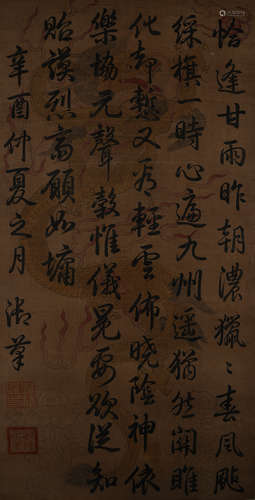 恰逢甘雨昨朝濃獵〻春風颭
綵旗一時心遍九州遥猶然關雎
化却熱又看輕雲佈曉陰神依
樂協元聲豰惟儀冕要欲從知
貽謨烈高願如墉
辛酉仲夏之月 御筆